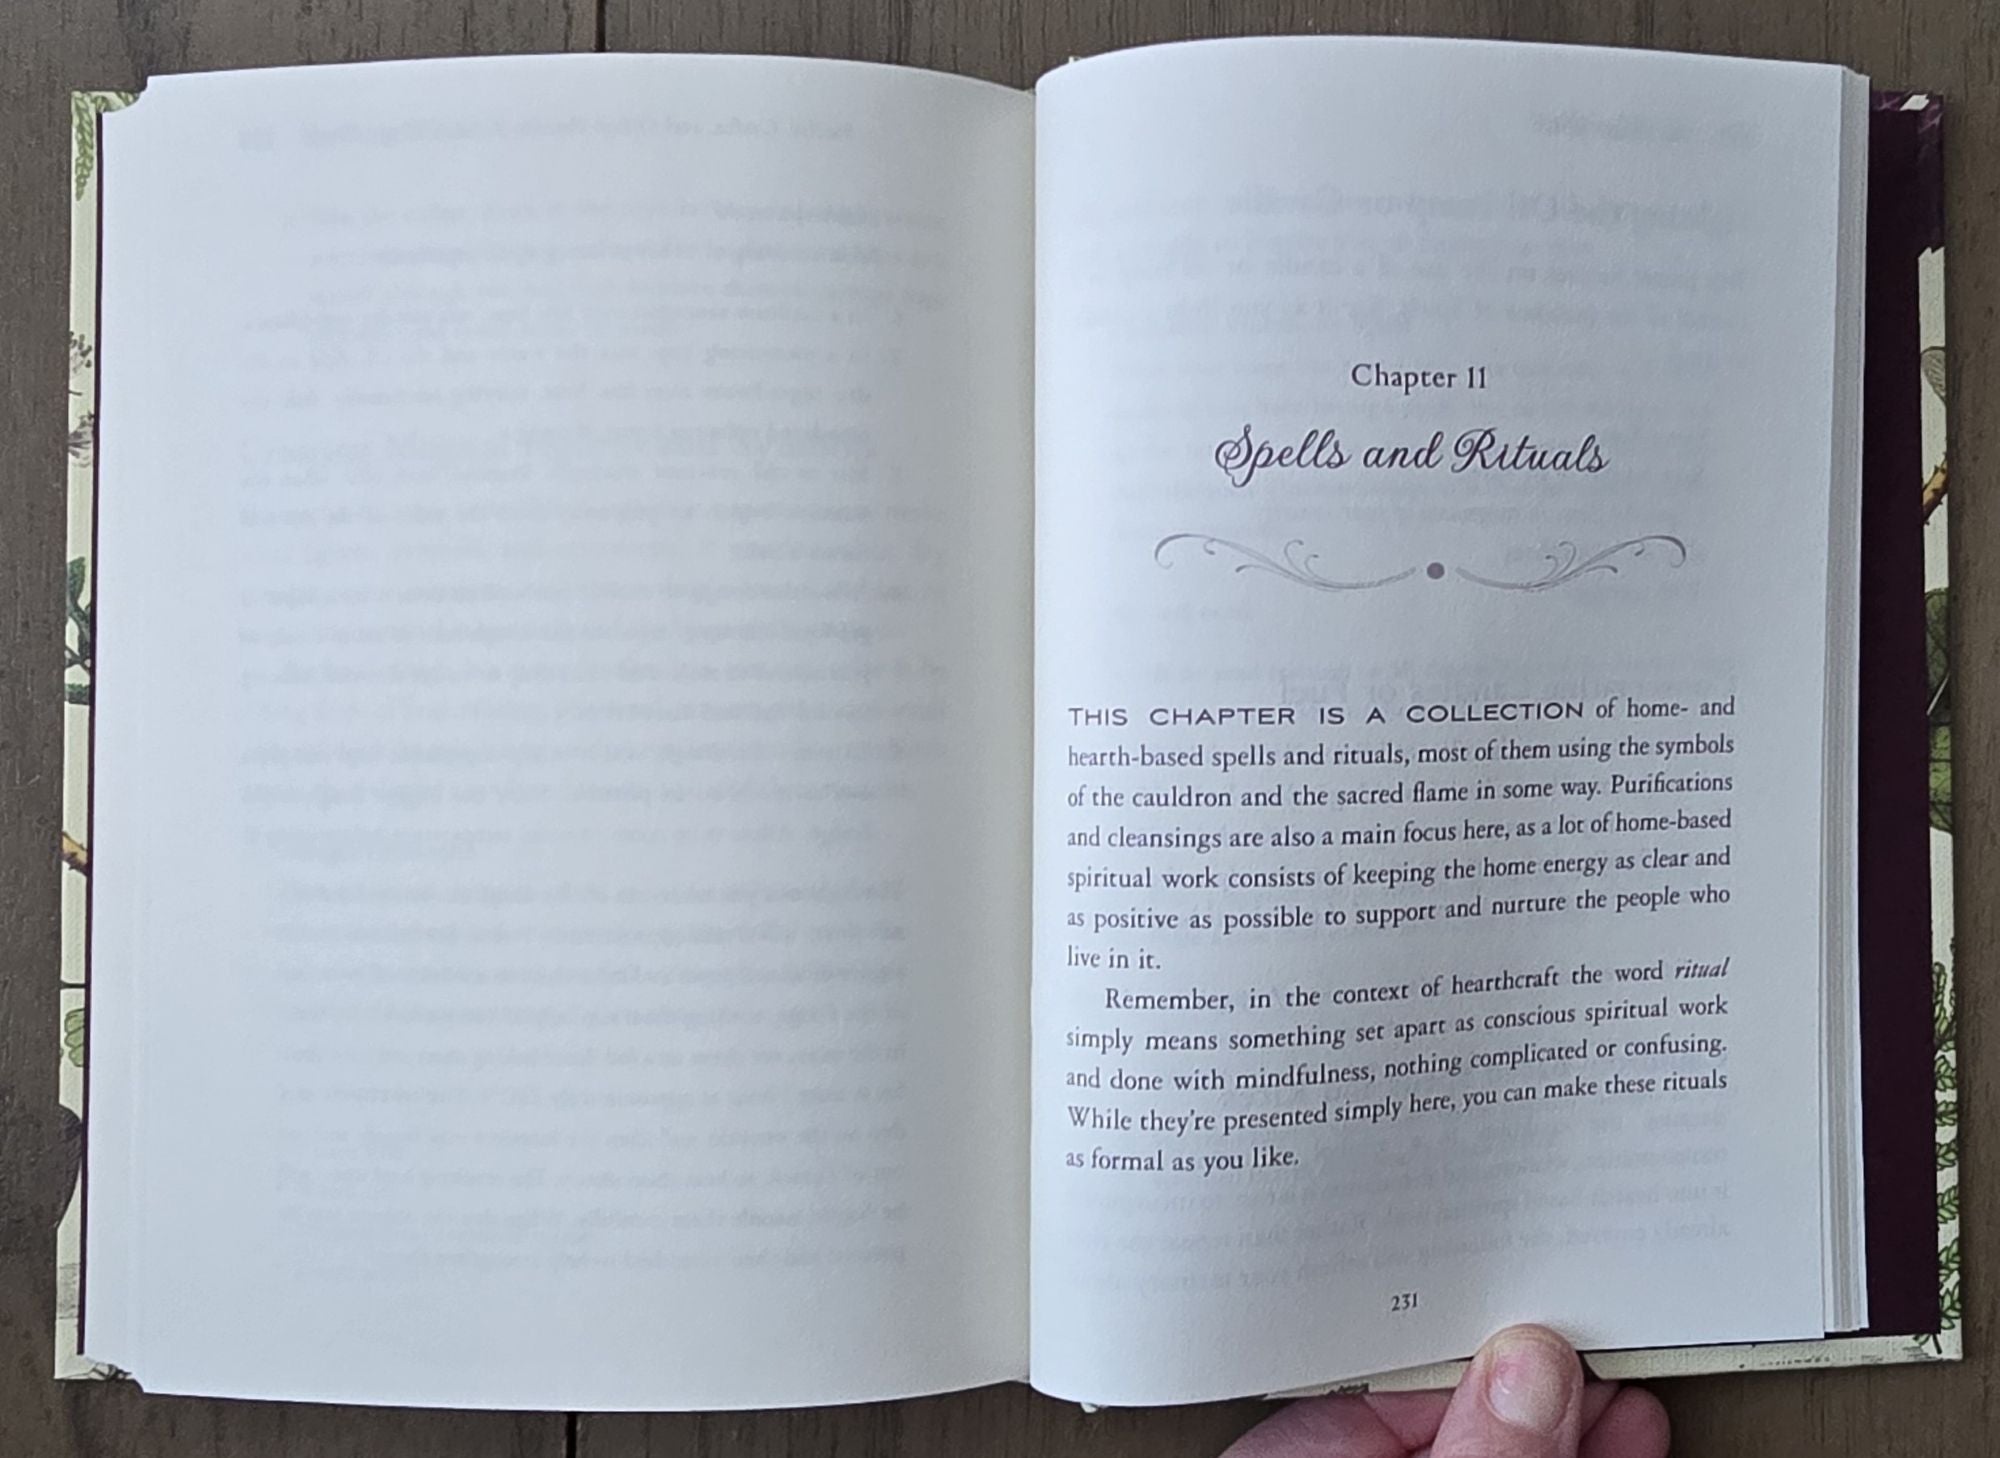 Chapter 11
Spells and Rituals
THIS CHAPTER IS A COLLECTION of home- and
hearth-based spells and rituals, most of them using the symbols
of the cauldron and the sacred flame in some way. Purifications
and cleansings are also a main focus here, as a lot of home-based
spiritual work consists of keeping the home energy as clear and
as positive as possible to support and nurture the people who
live in it.
Remember, in the context of hearthcraft the word ritual
simply means something set apart as conscious spiritual work
and done with mindfulness, nothing complicated or confusing.
While they're presented simply here, you can make these rituals
as formal as you like.
231